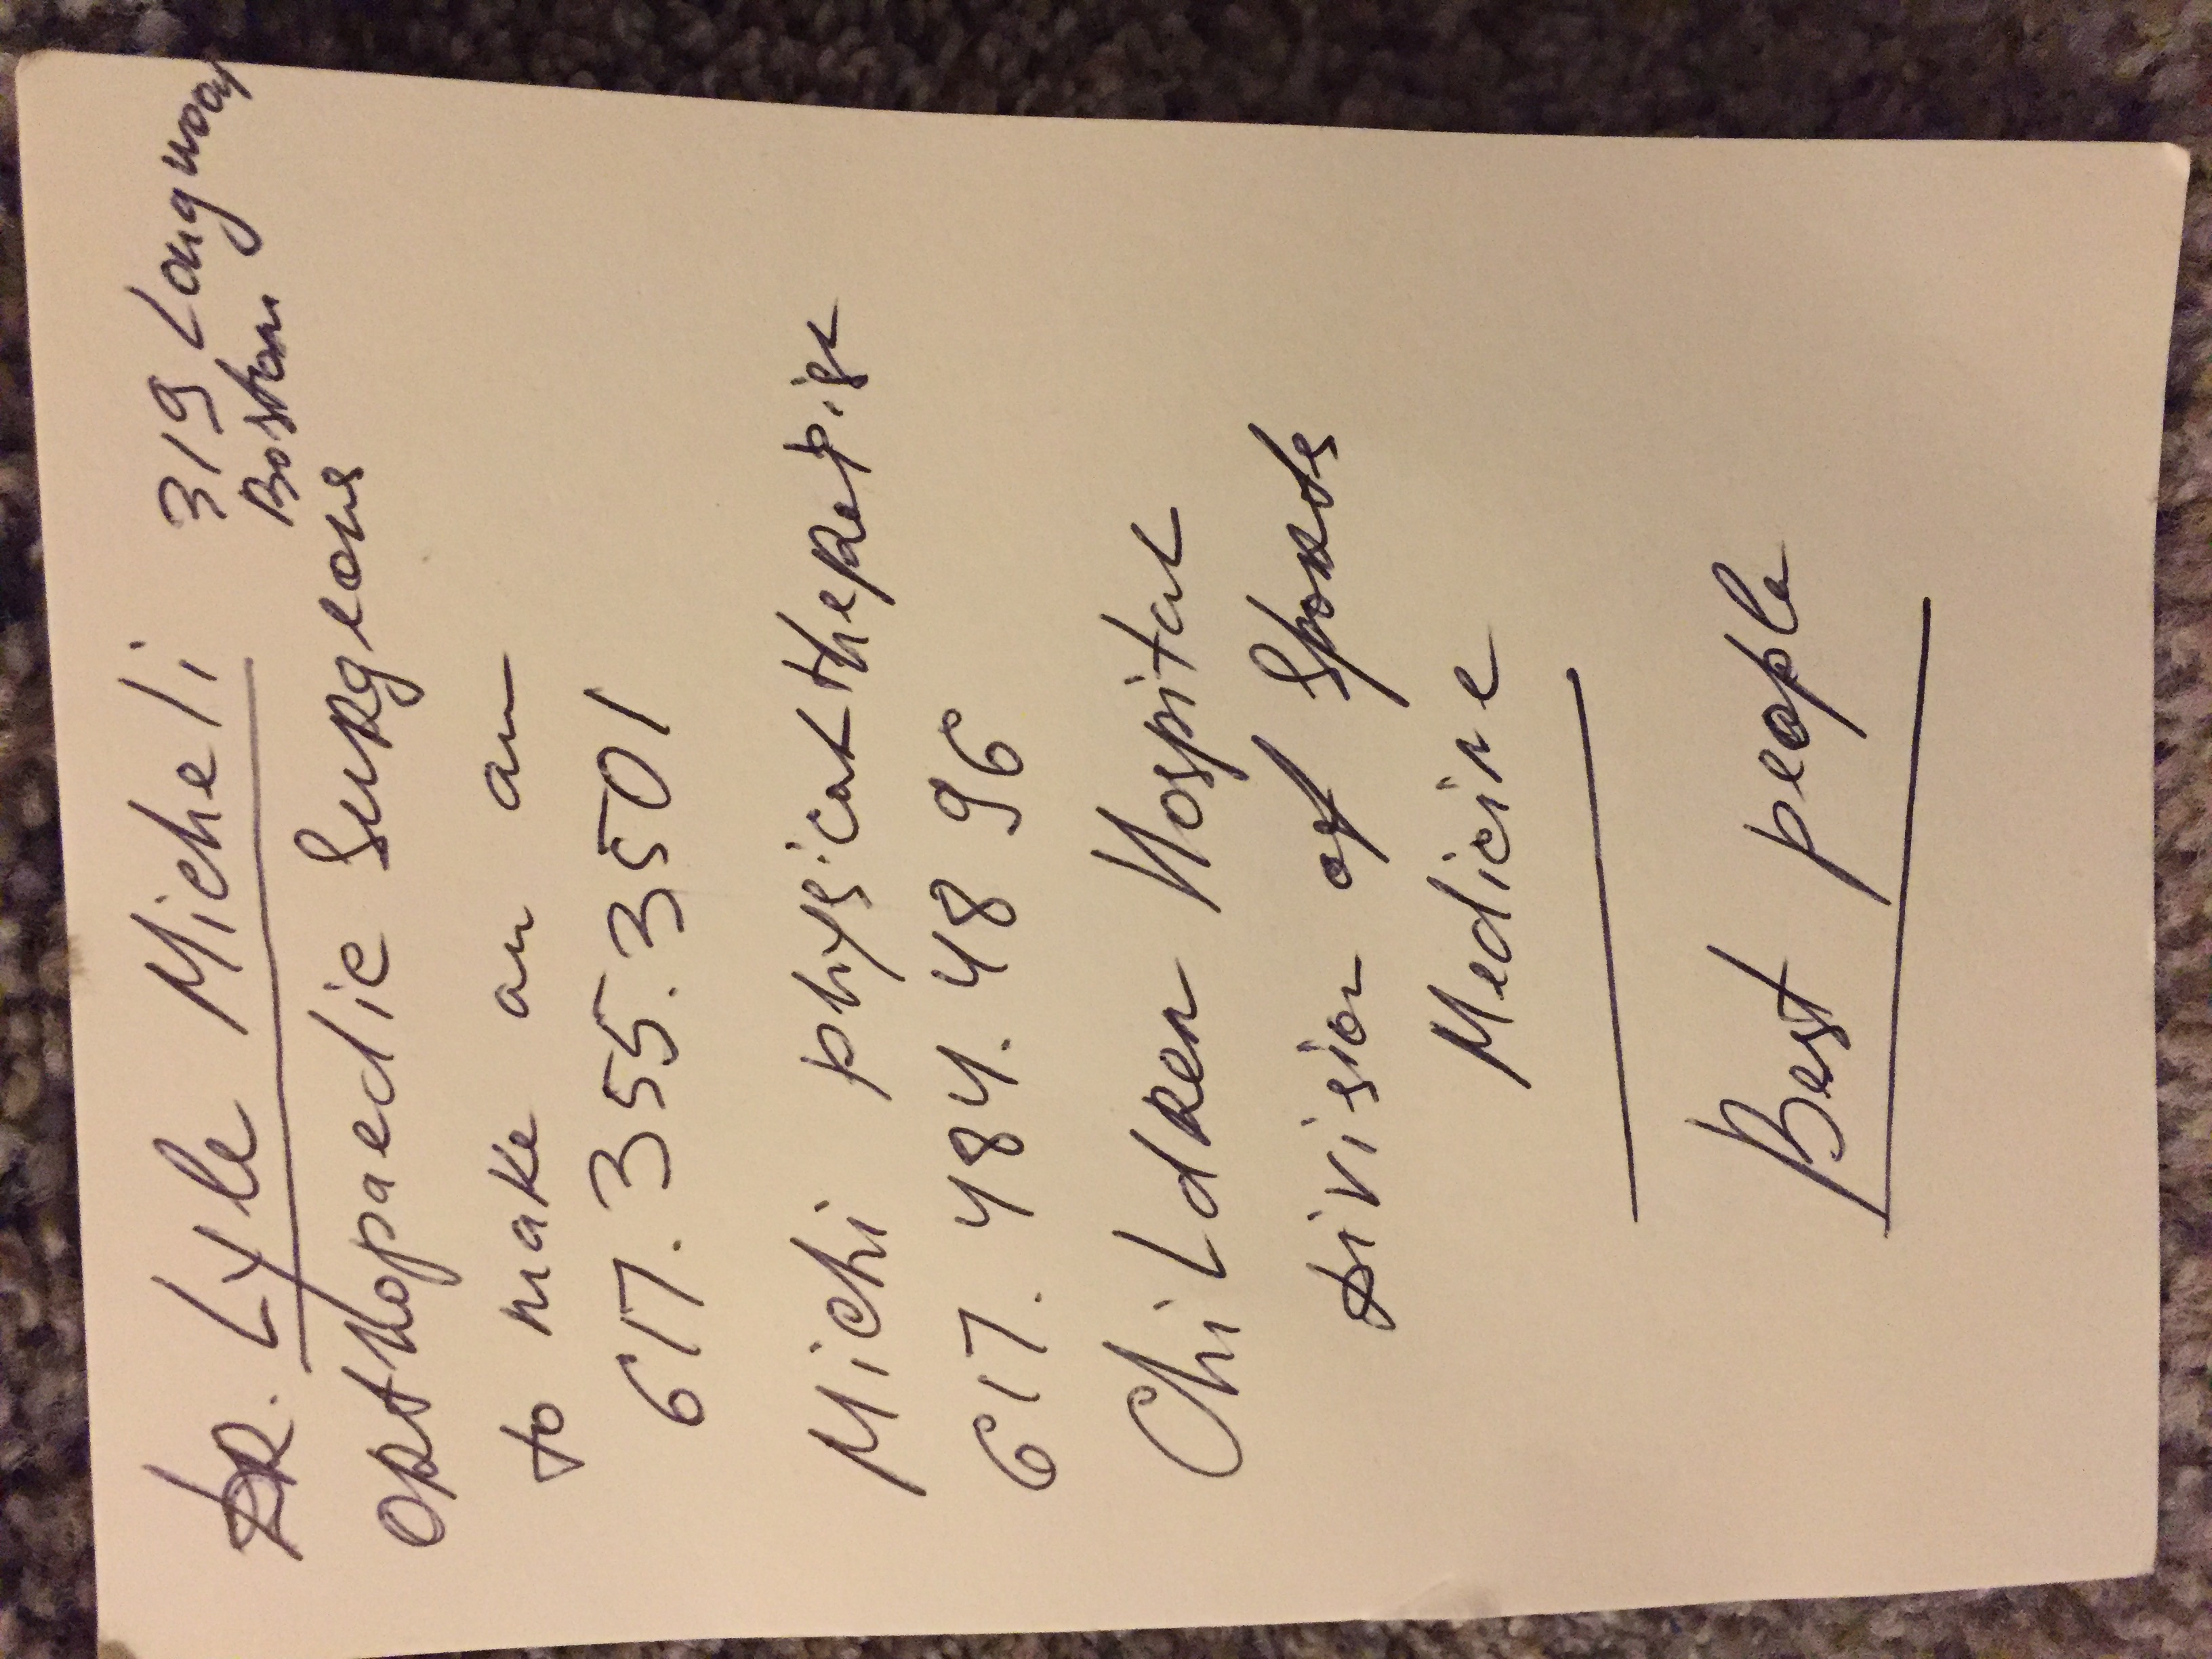 DR. Lyle Micheli 319 Longwood
Boston
Orthopaedic Surgeons
to make an an
617. 355. 3501
Michi physical therapist
617. 484. 48 96
Children Hospital
Division of Sports
Medicine
Best people